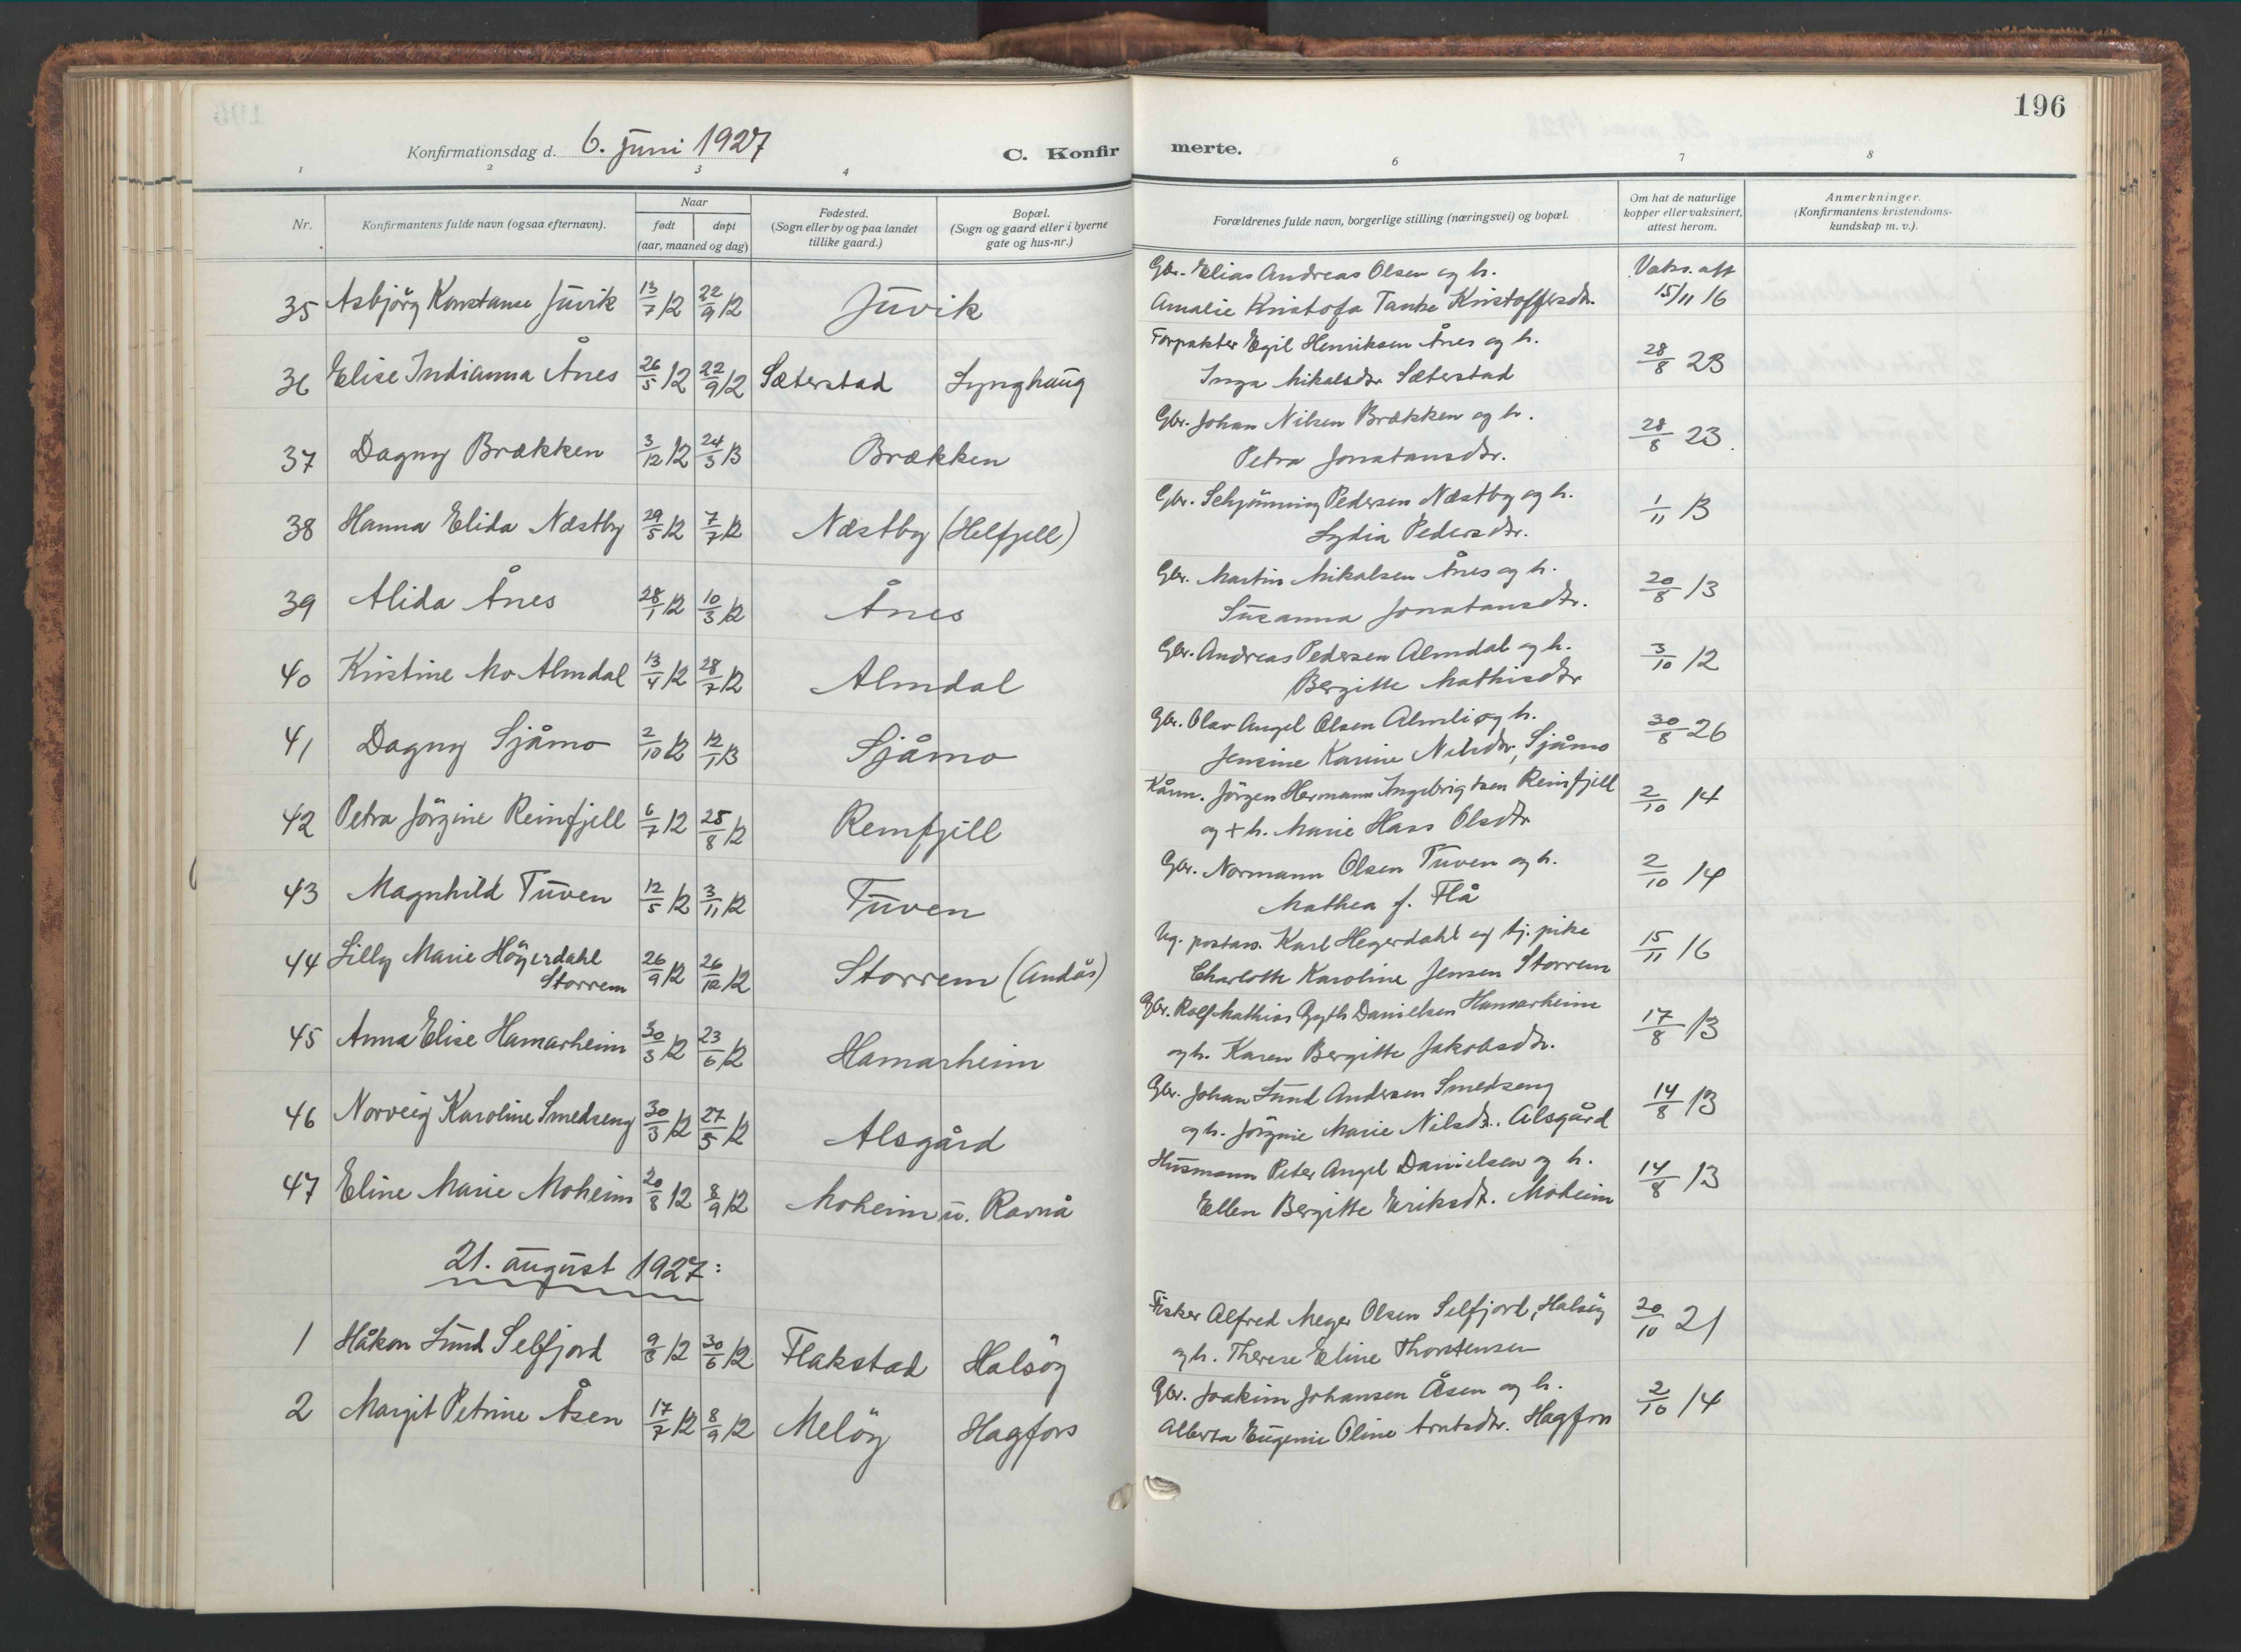 196
Konfirmationsdag d. 6. juni 1927
C. Konfirmerte.
1 2 3 4 6 7 8
Nr. Konfirmantens fulde navn (ogsaa efternavn). Naar født døpt (aar, maaned og dag) Fødested. (Sogn eller by og paa landet tillike gaard.) Bopæl. (Sogn og gaard eller i byerne gate og hus-nr.) Forældrenes fulde navn, borgerlige stilling (næringsvei) og bopæl. Om hat de naturlige kopper eller vaksinert, attest herom. Anmerkninger. (Konfirmantens kristendomskundskap m. v.).
35 Asbjörg Konstanse Juvik 13/7 12 22/9 12 Juvik Gbr. Elias Andreas Olsen og h. Vaks. att
Amalie Kristofa Tanke Kristoffersdtr. 15/11 16
36 Elise Indianna Ånes 26/5 12 22/9 12 Sæterstad Lynghaug Forpakter Egil Henriksen Ånes og h. 28/8 23
Inga Mikalsdtr Sæterstad
37 Dagny Brækken 3/12 12 24/3 13 Brækken Gbr. Johan Nilsen Brækken og h. 28/8 23.
Petra Jonatansdtr.
38 Hanna Elida Næstby 29/5 12 7/7 12 Næstby (Helfjell) Gbr. Schjönning Pedersen Næstby og h. 1/11 13
Lydia Pedersdtr.
39 Alida Ånes 28/1 12 10/3 12 Ånes Gbr. Martin Mikalsen Ånes og h. 20/8 13
Susanna Jonatansdtr.
40 Kristine Mo Almdal 13/4 12 28/7 12 Almdal Gbr. Andreas Pedersen Almdal og h. 3/10 12
Bergitte Mathisdtr
41 Dagny Sjåmo 2/10 12 12/1 13 Sjåmo Gbr. Olav Angel Olsen Almli og h. 30/8 26
Jensine Karine Nilsdtr, Sjåmo
42 Petra Jörgine Reinfjell 6/7 12 25/8 12 Reinfjell Kårm. Jörgen Hermann Ingebrigtsen Reinfjell 2/10 14
og + h. Marie Hass Olsdtr
43 Magnhild Tuven 12/5 12 3/11 12 Tuven Gbr. Normann Olsen Tuven og h. 2/10 14
Mathea f. Flå
44 Lilly Marie Högerdahl Storrem 26/9 12 26/12 12 Storrem (Andås) Ug. postass. Karl Hegerdahl og tj. pike 15/11 16
Charlotte Karoline Jensen Storrem
45 Anna Elise Hamarheim 30/3 12 23/6 12 Hamarheim Gbr. Rolf Mathias Gyth Danielsen Hamarheim 17/8 13
og h. Karen Bergitte Jakobsdtr.
46 Norveig Karoline Smedseng 30/3 12 27/5 12 Alsgård Gbr. Johan Lund Andersen Smedseng 14/8 13
og h. Jörgine Marie Nilsdtr. Alsgård
47 Eline Marie Moheim 20/8 12 8/9 12 Moheim u. Ravnå Husmann Peter Angel Danielsen og h. 14/8 13
Ellen Bergitte Eriksdtr. Moheim
21. august 1927:
1 Håkon Lund Selfjord 9/3 12 30/6 12 Flakstad Halsöy Fisker Alfred Meyer Olsen Selfjord, Halsöy 20/10 21
og h. Therese Eline Thorstensen
2 Margit Petrine Åsen 17/7 12 8/9 12 Melöy Hagfors Gbr. Joakim Johansen Åsen og h. 2/10 14
Alberta Eugenie Oline Arntsdtr. Hagfors